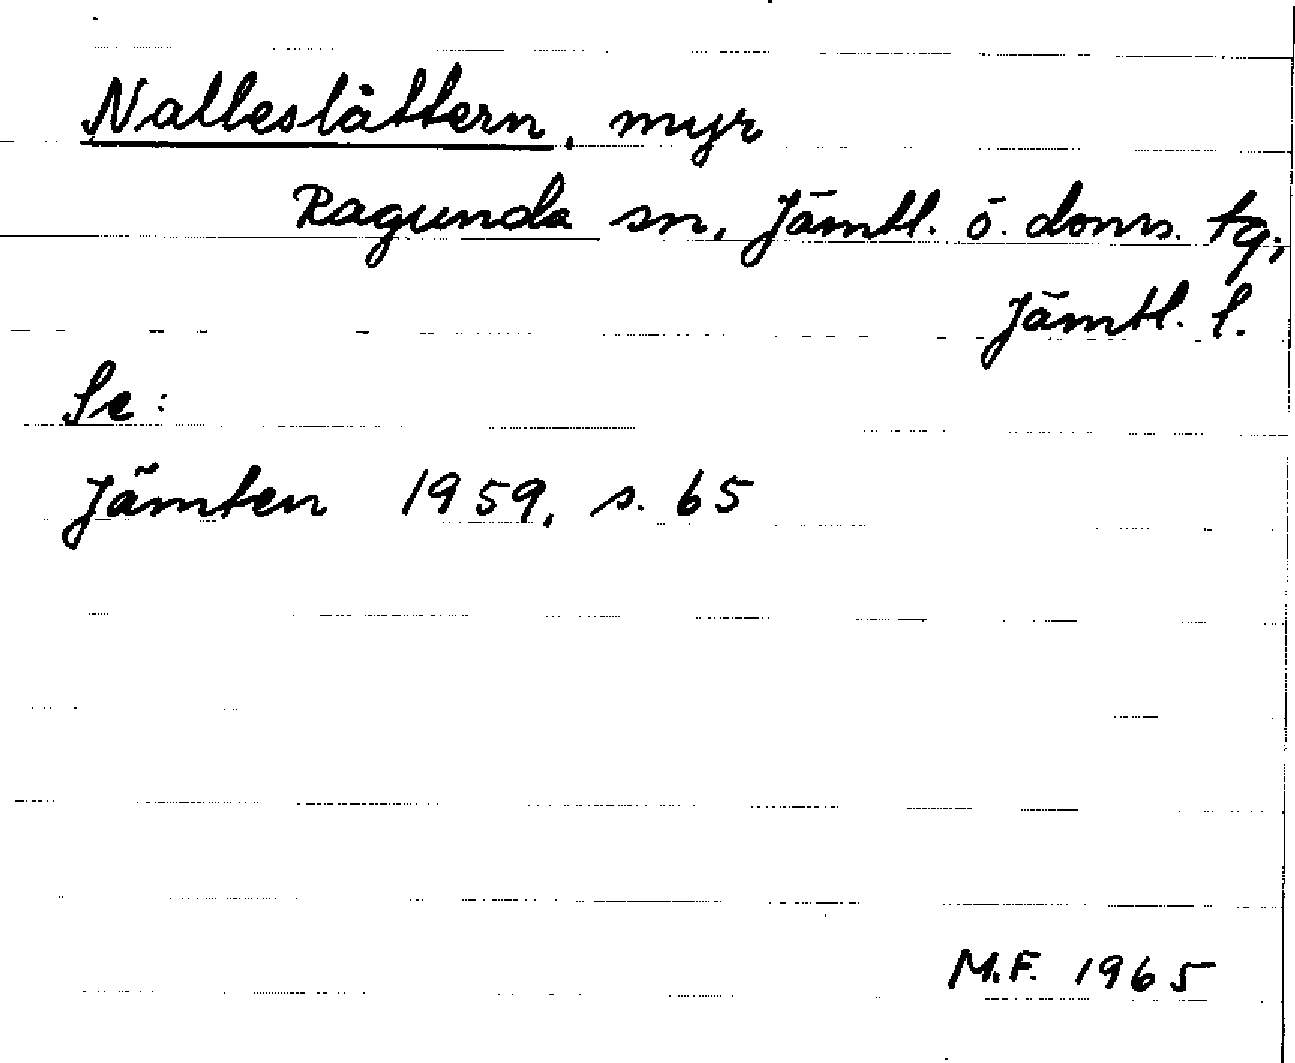 Nalleslåttern, myr
Ragunda sn, Jämtl. ö. doms. tg,
Jämtl. l.
Se:
Jämten 1959, s. 65
M.F. 1965